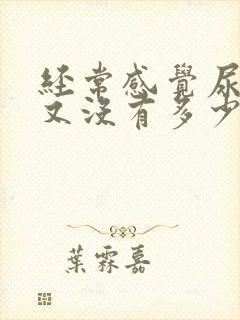 經常感覺尿
又沒有多少
葉霖嘉